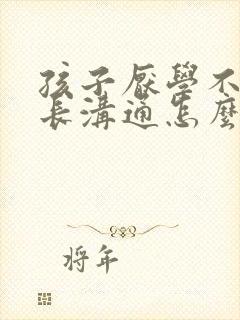 孩子厭學不
長溝通怎麼
將年